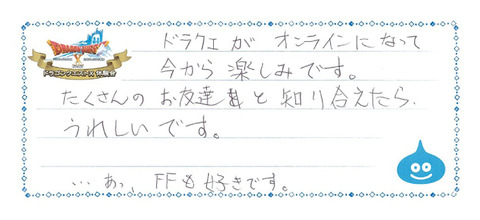 DRAGON QUEST X
ドラゴンクエストX 体験会
ドラクエが オンラインになって
今から 楽しみです。
たくさんの お友達と 知り合えたら
うれしいです。
… あっ、FFも 好きです。